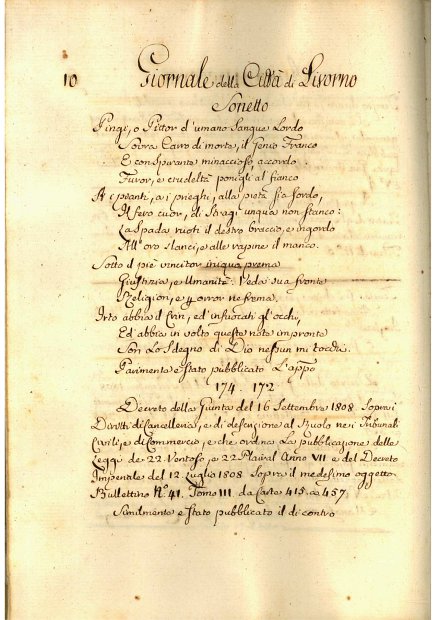 10 Giornale della Città di Livorno
Sonetto
Pingi, o Pittor d'umano Sangue Lordo
Sovra Carro di morte, il Genio Franco
E conspirante minaccioso accordo
Furor, e crudeltà ponigli al fianco
A i pianti, a i prieghi, alla pietà sia sordo,
Il fero cuor, di Stragi unqua non stanco:
La Spada ruoti il destro braccio, e ingordo
All'oro slanci, e alle rapine il manco.
Sotto il piè vincitor iniqua prema
Giustizia, e Umanità: Veda sua fronte
Religion, e p orror ne frema.
Irto abbia il Crin, ed infuocati gl'occhi,
Ed abbia in volto queste note impronte
Son Lo Sdegno di Dio nessun mi tocchi.
Parimente è Stato pubblicato L'app.o
174. 172
Decreto della Giunta del 16 Settembre 1808. Sopra i
Diritti di Cancelleria, e di descrizione al Ruolo nei Tribunali
Civili, e di Commercio, e che ordina La pubblicazione delle
Leggi de 22. Ventoso, e 22 Pratial Anno VII e del Decreto
Imperiale del 12 Luglio 1808 Sopra il medesimo oggetto
Bullettino N.o 41. Tomo III. da Carte 415. a 457.
Similmente è Stato pubblicato il di contro